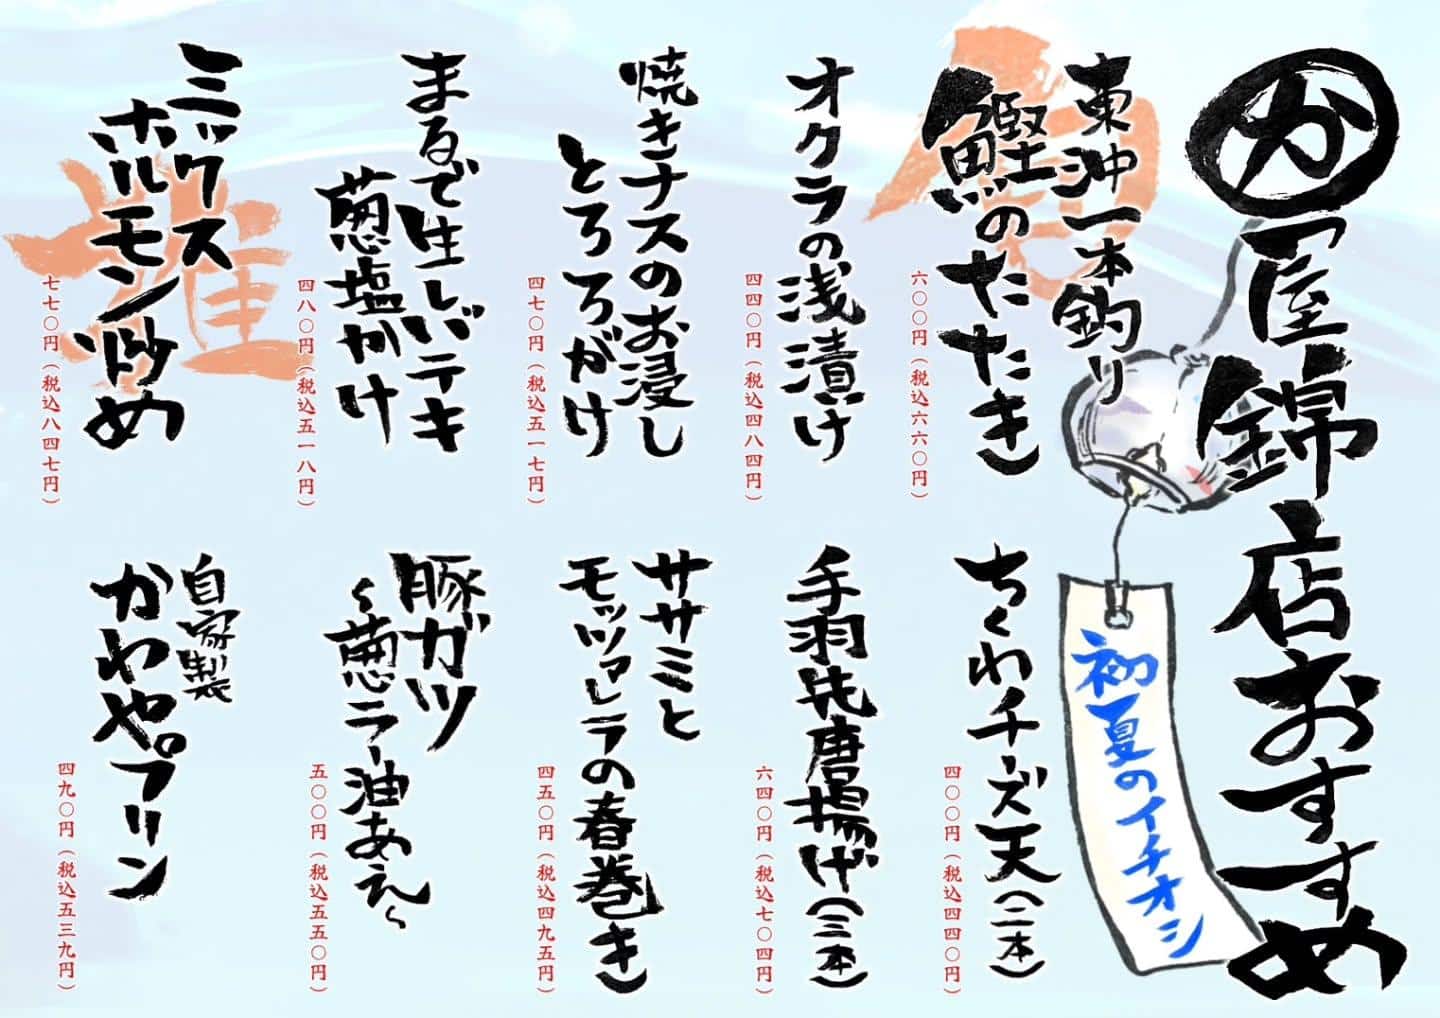 か屋錦店おすすめ
初夏のイチオシ
東沖一本釣り
鰹のたたき
六〇〇円(税込六六〇円)
オクラの浅漬け
四四〇円(税込四八四円)
焼きナスのお浸し
とろろがけ
四七〇円(税込五一七円)
まるで生レバテキ
葱塩かけ
四八〇円(税込五一八円)
ミックス
ホルモン炒め
七七〇円(税込八四七円)
ちくわチーズ天(二本)
四〇〇円(税込四四〇円)
手羽先唐揚げ(三本)
六四〇円(税込七〇四円)
ササミと
モッツァレラの春巻き
四五〇円(税込四九五円)
豚ガツ
~葱ラー油あえ~
五〇〇円(税込五五〇円)
自家製
かわやプリン
四九〇円(税込五三九円)